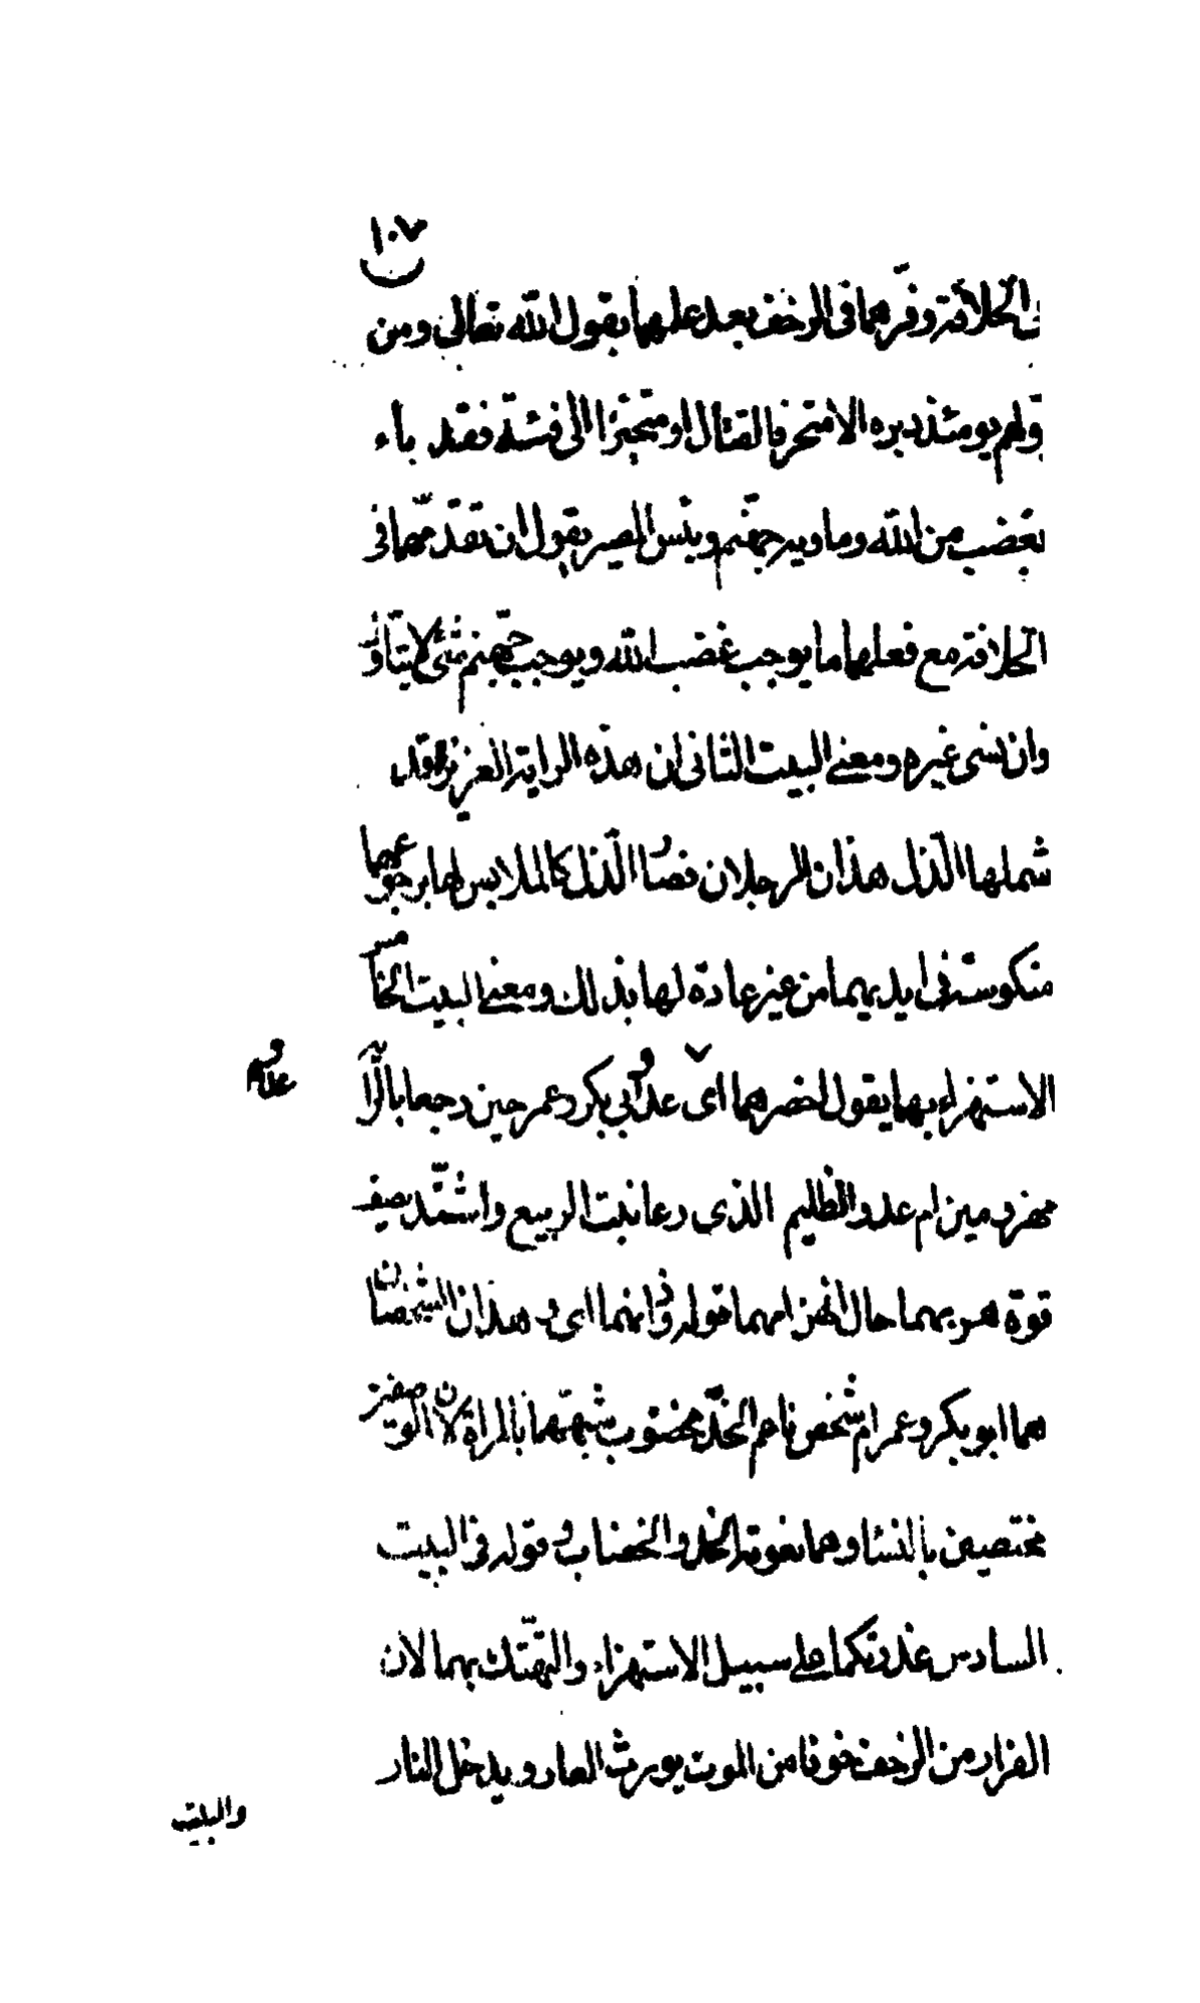 ١٠٧
فى الخلافة وفرهما فى الزحف بعد علمهما بقول الله تعالى ومن
يولهم يومئذ دبره الا متحرفا لقتال او متحيزا الى فئة فقد باء
بغضب من الله وماويه جهنم وبئس المصير يقول ان تقدمهما فى
الخلافة مع فعلهما ما يوجب غضب الله ويوجب جهنم شئ لا يتأ
وان نسى غيره ومعنى البيت الثانى ان هذه الراية العزيزة قد
شملها الذل هذان الرجلان فصار الذل كالملابس لها برجوعهما
منكوسة فى ايديهما من غير عادة لها بذلك ومعنى البيت الخامس
الاستهزاء بهما يقول احضرهما اى عدو ابى بكر وعمر حين رجعا بالرا
مهزومين ام عدو الظليم الذى رعا نبت الربيع واشتد يصف
قوة هربهما حال انهزامهما قوله وانهما اى و هذان الشخصان
هما ابو بكر وعمر ام شخص ناعم الخد مخضوب شبههما بالمراة لان الوصفين
مختصين بالنسا وهما نعومة الخد والخضاب وقوله فى البيت
السادس عذرتكما على سبيل الاستهزاء والتهتك بهما لان
الفرار من الزحف خوفا من الموت يورث العار ويدخل النار
والبيت